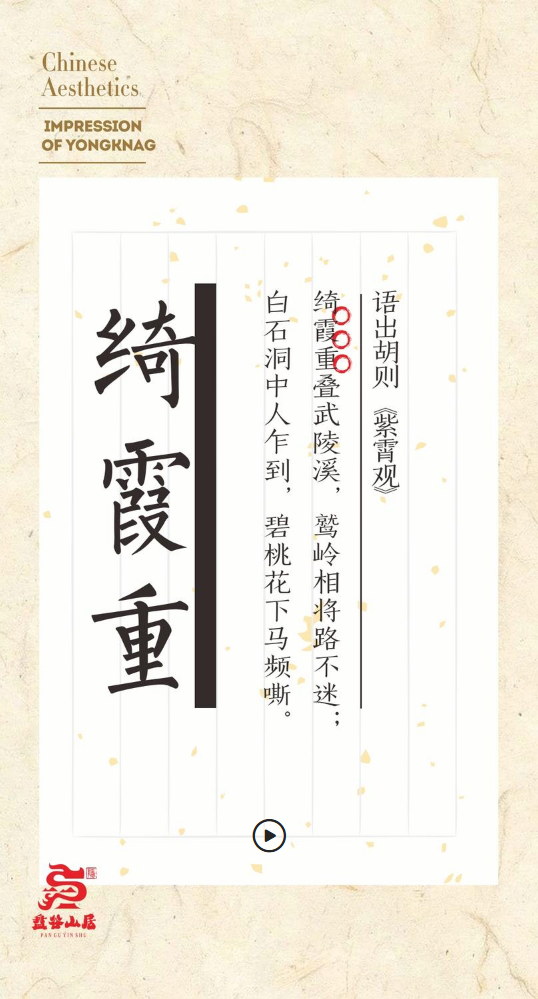 Chinese
Aesthetics
IMPRESSION
OF YONGKNAG
语出胡则 《紫霄观》
绮霞重叠武陵溪，鹫岭相将路不迷；
白石洞中人乍到，碧桃花下马频嘶。
绮霞重
盘谷山居
PAN GU YIN SHU